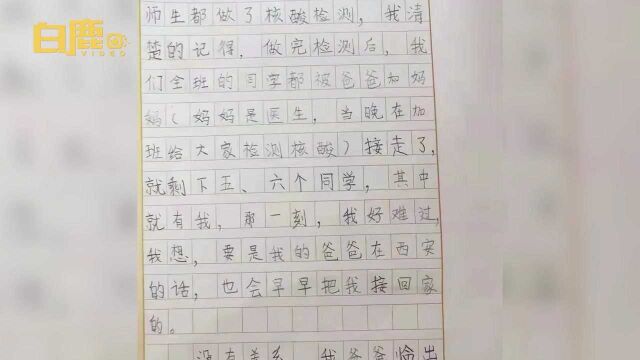 白鹿
VIDEO
师生都做了核酸检测,我清
楚的记得,做完检测后,我
们全班的同学都被爸爸和妈
妈(妈妈是医生,当晚在加
班给大家检测核酸)接走了,
就剩下五、六个同学,其中
就有我,那一刻,我好难过,
我想,要是我的爸爸在西安
的话,也会早早把我接回家
的。
没有关系,我爸爸